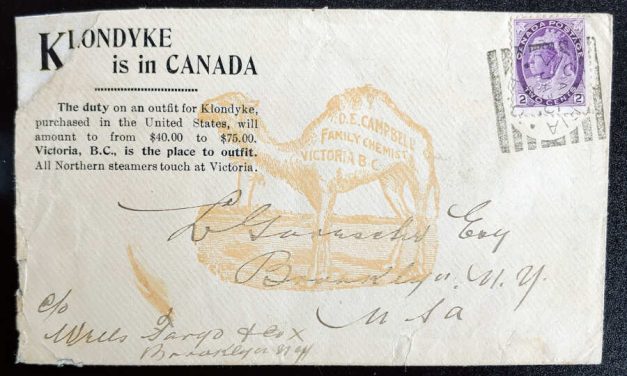 KLONDYKE
is in CANADA
The duty on an outfit for Klondyke,
purchased in the United States, will
amount to from $40.00 to $75.00.
Victoria, B.C., is the place to outfit.
All Northern steamers touch at Victoria.
D.E. CAMPBELL
FAMILY CHEMIST
VICTORIA B.C.
CANADA POSTAGE
2 TWO CENTS 2
Esq
Brooklyn N.Y.
U S A
c/o
Wells Fargo & Co
Brooklyn N Y